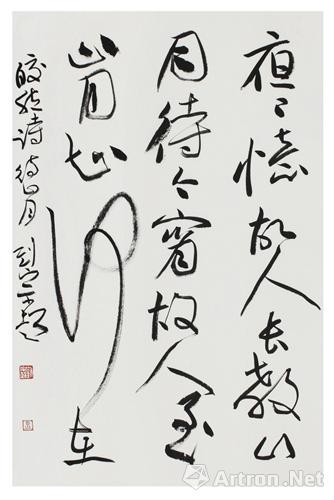 夜〻憶故人長教山
月待今宵故人至
山月知何在
皎然詩待山月
Artron.Net